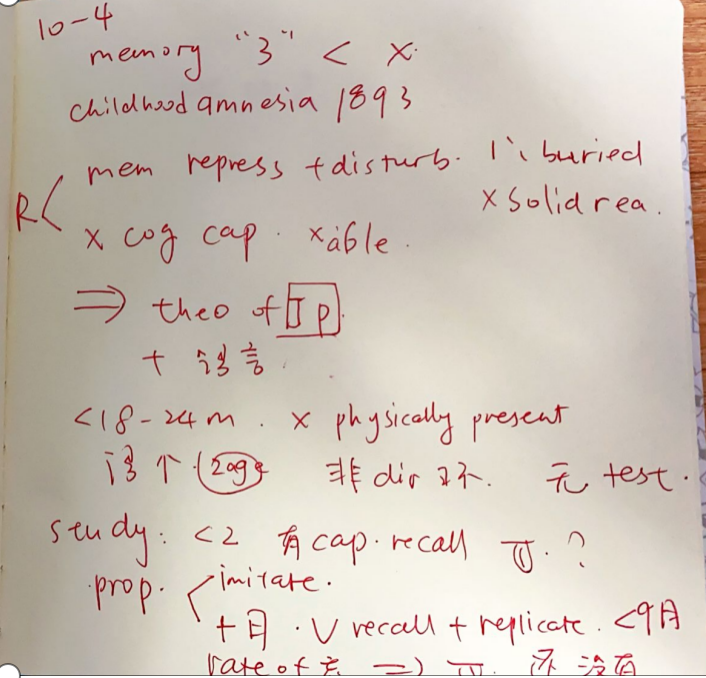 10-4
memory "3" < x.
childhood amnesia 1893
mem repress + disturb. buried
R x solid rea.
x cog cap. x able.
⇒ theo of J p.
+ 语言.
<18-24m. x physically present
非 dir 无 test.
study: <2 有 cap. recall ?
prop. imitate.
+月. V recall + replicate. <9月
rate of ⇒ 没有